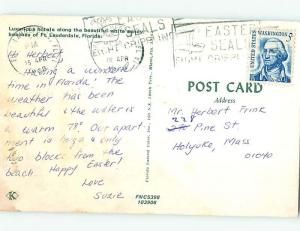 Luxurious hotels along the beautiful white sandy
beaches of Ft. Lauderdale, Florida.
Hi Herbert,
Having a wonderful
time in Florida! The
weather has been
beautiful & the water is
a warm 78°. Our apart-
ment is only
two blocks from the
beach. Happy Easter!
Love
Suzie
15 APR
EASTER
SEALS
FIGHT CRIPPLING
WASHINGTON
5¢
POST CARD
Address
Mr Herbert Frink
228
Pine St
Holyoke, Mass
01040
FNC5398
103908
K